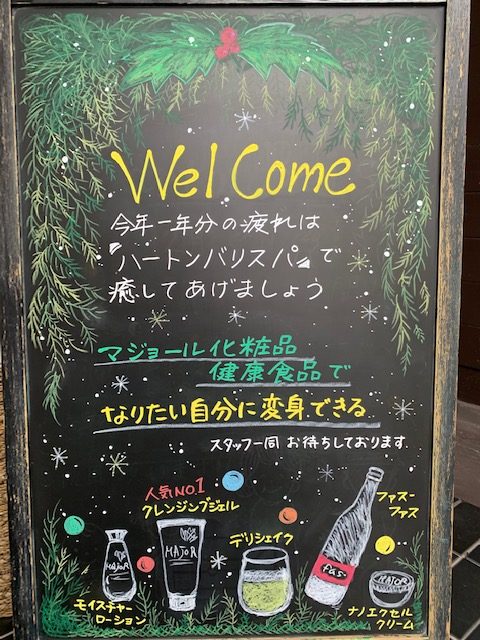 Wel Come
今年一年分の疲れは
『ハートンバリスパ』で
癒してあげましょう
マジョール化粧品
健康食品で
なりたい自分に変身できる
スタッフ一同 お待ちしております
人気NO.1
クレンジンブジェル
デリシェイク
ファスーファス
MAJOR
MAJOR
fas
MAJOR
モイスチャー
ローション
ナノエクセル
クリーム